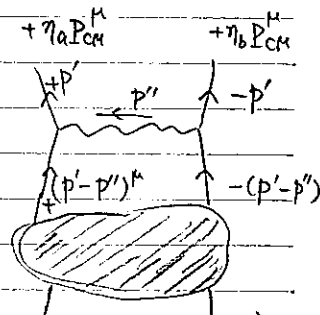 +η_a P_CM^μ +η_b P_CM^μ
+p' p'' -p'
+(p'-p'')^μ -(p'-p'')